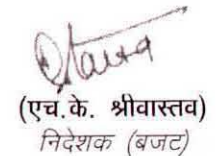 (एच.के. श्रीवास्तव)
निदेशक (बजट)